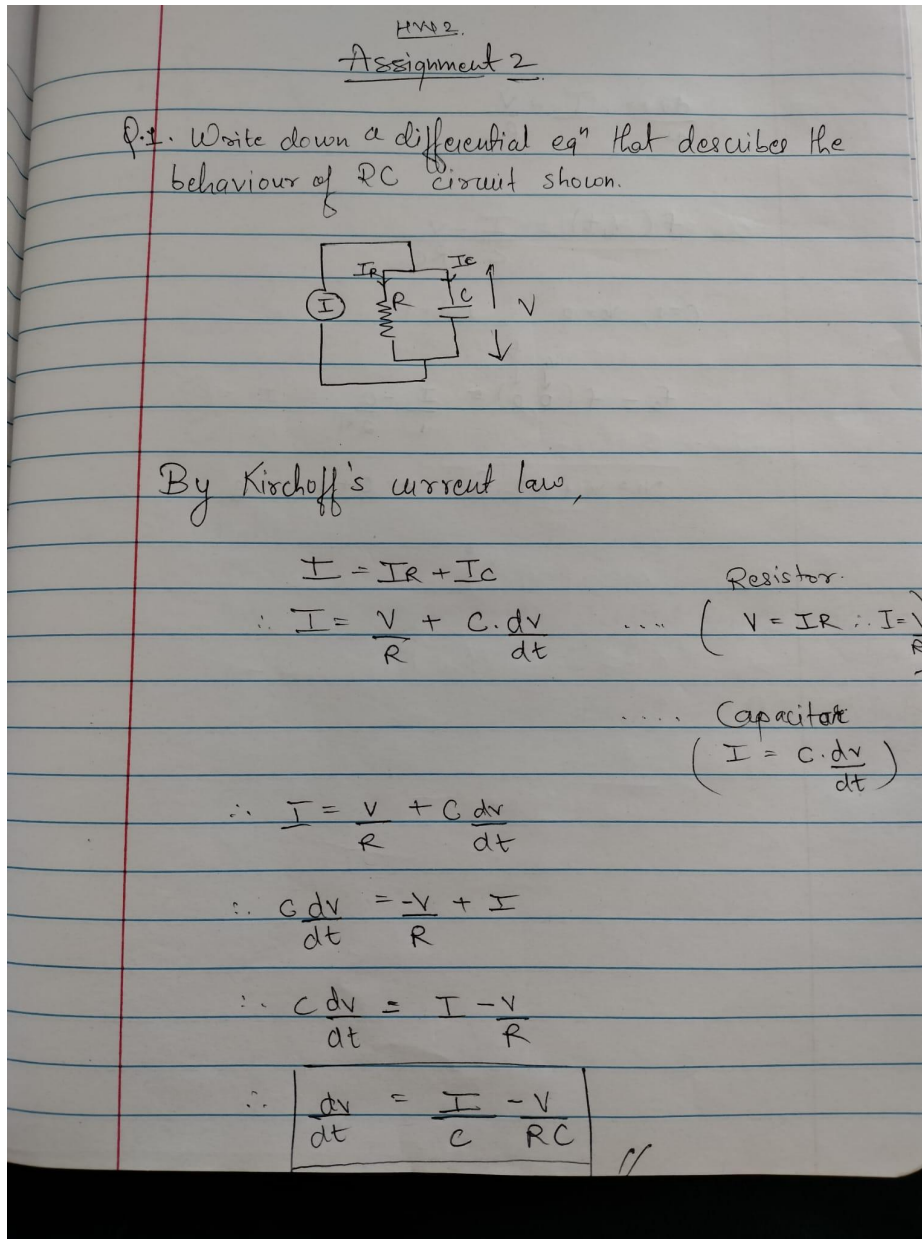 HW2.
Assignment 2.
Q.1. Write down a differential eqⁿ that describes the
behaviour of RC circuit shown.
IR IC
I R C V
By Kirchoff's current law,
I = IR + IC
Resistor.
∴ I = V/R + C. dv/dt .... ( V = IR ∴ I = V/R )
.... Capacitor
( I = C. dv/dt )
∴ I = V/R + C dv/dt
∴ C dv/dt = -V/R + I
∴ C dv/dt = I - V/R
∴ dv/dt = I/C - V/RC //